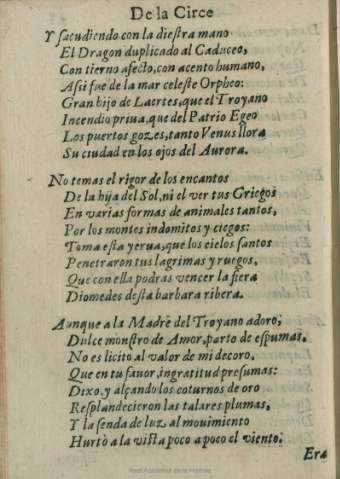 De la Circe
Y sacudiendo con la diestra mano
El Dragon duplicado al Caduceo,
Con tierno afecto, con acento humano,
Assi fue de la mar celeste Orpheo:
Gran hijo de Laertes, que el Troyano
Incendio priua, que del Patrio Egeo
Los puertos gozes, tanto Venus llora
Su ciudad en los ojos del Aurora.
No temas el rigor de los encantos
De la hija del Sol, ni el ver tus Griegos
En varias formas de animales tantos,
Por los montes indomitos y ciegos:
Toma esta yerua, que los cielos santos
Penetraron tus lagrimas y ruegos,
Que con ella podras vencer la fiera
Diomedes desta barbara ribera.
Aunque a la Madre del Troyano adoro,
Dulce monstro de Amor, parto de espumas,
No es licito al valor de mi decoro,
Que en tu fauor, ingratitud presumas:
Dixo, y alçando los coturnos de oro
Resplandecieron las talares plumas,
Y la senda de luz al mouimiento
Hurtò a la vista poco a poco el viento.
Era
Real Academia de la Historia